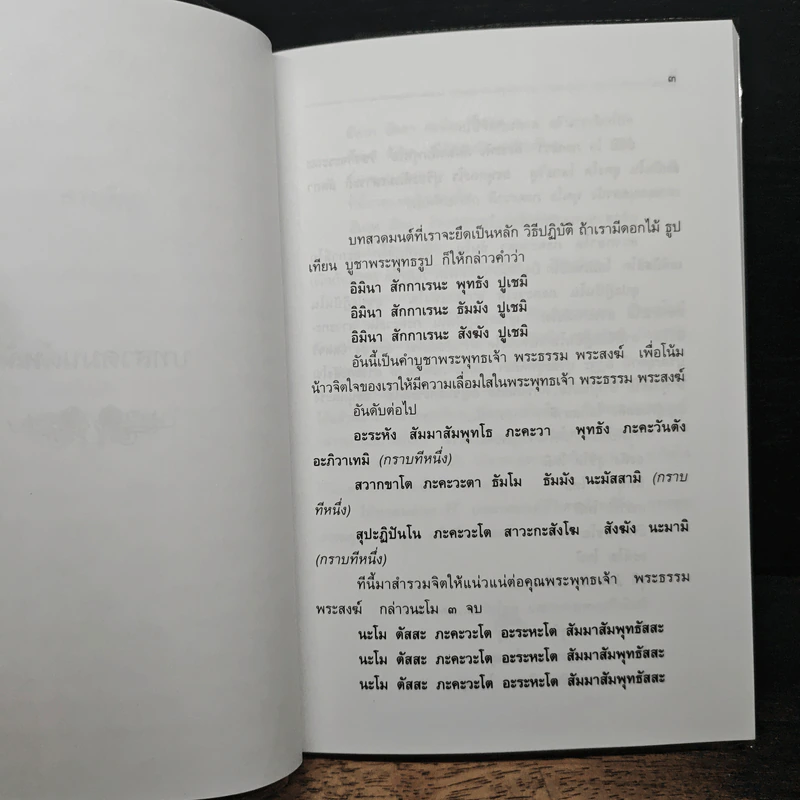 ๓
บทสวดมนต์ที่เราจะยึดเป็นหลัก วิธีปฏิบัติ ถ้าเรามีดอกไม้ ธูป
เทียน บูชาพระพุทธรูป ก็ให้กล่าวคำว่า
อิมินา สักกาเรนะ พุทธัง ปูเชมิ
อิมินา สักกาเรนะ ธัมมัง ปูเชมิ
อิมินา สักกาเรนะ สังฆัง ปูเชมิ
อันนี้เป็นคำบูชาพระพุทธเจ้า พระธรรม พระสงฆ์ เพื่อโน้ม
น้าวจิตใจของเราให้มีความเลื่อมใสในพระพุทธเจ้า พระธรรม พระสงฆ์
อันดับต่อไป
อะระหัง สัมมาสัมพุทโธ ภะคะวา พุทธัง ภะคะวันตัง
อะภิวาเทมิ (กราบทีหนึ่ง)
สวากขาโต ภะคะวะตา ธัมโม ธัมมัง นะมัสสามิ (กราบ
ทีหนึ่ง)
สุปะฏิปันโน ภะคะวะโต สาวะกะสังโฆ สังฆัง นะมามิ
(กราบทีหนึ่ง)
ทีนี้มาสำรวมจิตให้แน่วแน่ต่อคุณพระพุทธเจ้า พระธรรม
พระสงฆ์ กล่าวนะโม ๓ จบ
นะโม ตัสสะ ภะคะวะโต อะระหะโต สัมมาสัมพุทธัสสะ
นะโม ตัสสะ ภะคะวะโต อะระหะโต สัมมาสัมพุทธัสสะ
นะโม ตัสสะ ภะคะวะโต อะระหะโต สัมมาสัมพุทธัสสะ